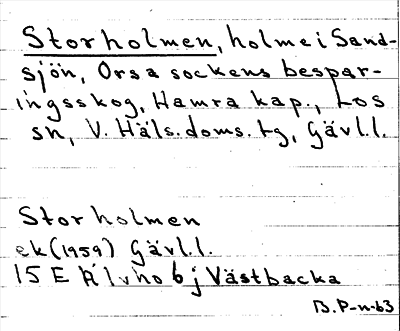 Storholmen, holme i Sand-
sjön, Orsa sockens bespar-
ingsskog, Hamra kap., Los
sn, V. Häls. doms. tg, Gävl.l.
Storholmen
ek (1959) Gävl.l.
15 E Älvho 6 j Västbacka
B. P-n-63